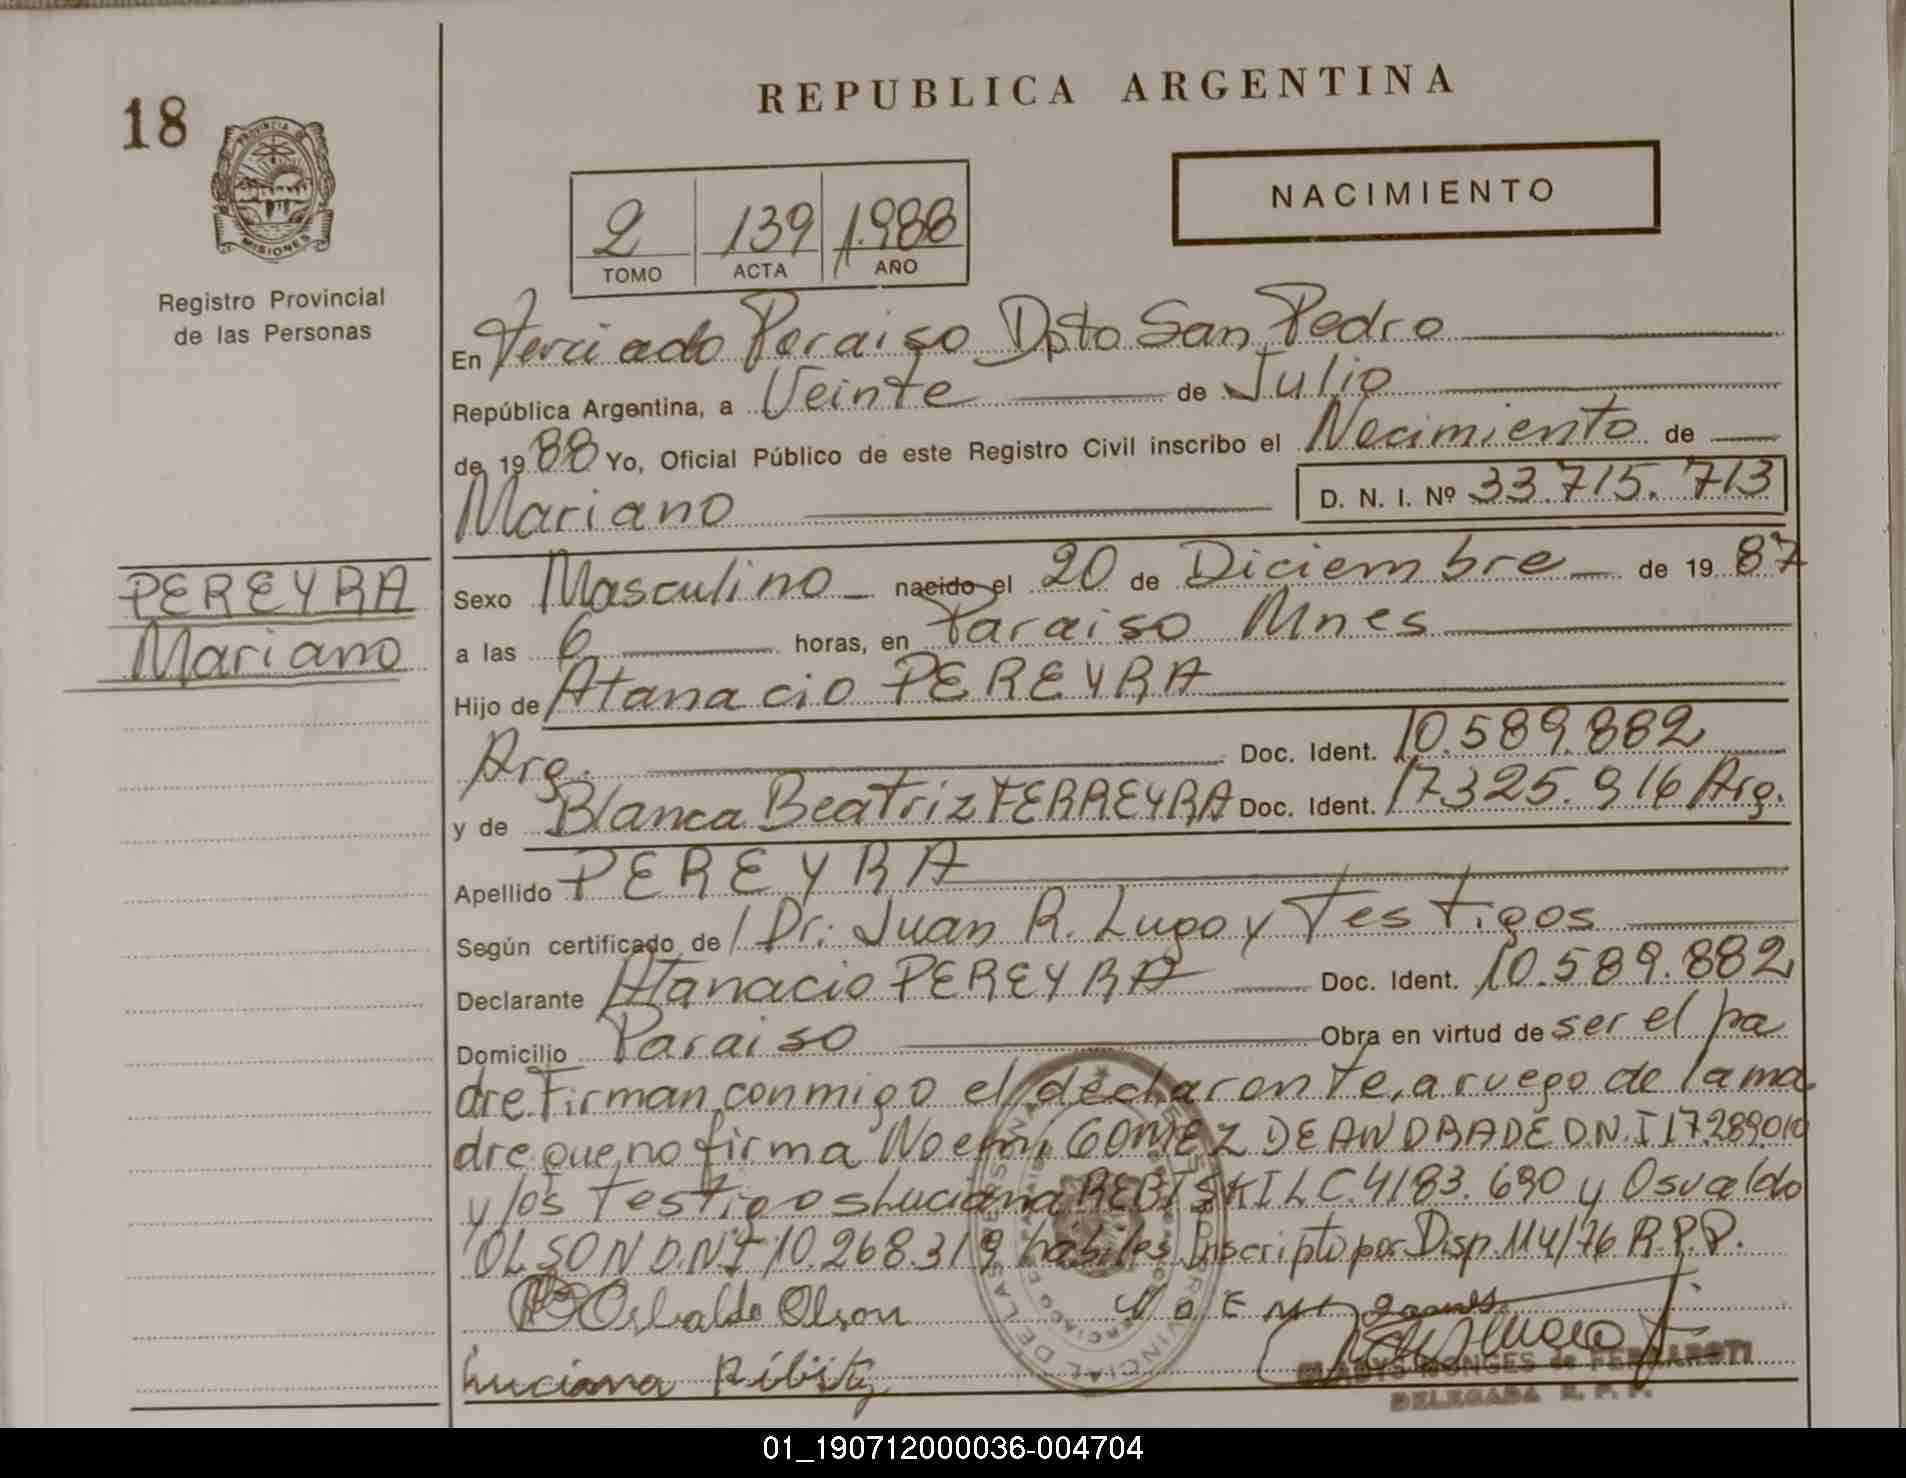 18
PROVINCIA DE
MISIONES
Registro Provincial
de las Personas
REPUBLICA ARGENTINA
NACIMIENTO
2 139 1.988
TOMO ACTA AÑO
En Terciado Paraiso Dpto San Pedro
República Argentina, a Veinte de Julio
de 1988 Yo, Oficial Público de este Registro Civil inscribo el Nacimiento de
Mariano D. N. I. Nº 33.715.713
PEREYRA
Mariano
Sexo Masculino nacido el 20 de Diciembre de 1987
a las 6 horas, en Paraiso Mnes
Hijo de Atanacio PEREYRA
Arg. Doc. Ident. 10.589.882
y de Blanca Beatriz FERREYRA Doc. Ident. 17325.916 Arg.
Apellido PEREYRA
Según certificado de Dr. Juan R. Lugo y Testigos
Declarante Atanacio PEREYRA Doc. Ident. 10.589.882
Domicilio Paraiso Obra en virtud de ser el pa
dre. Firman conmigo el declarante, a ruego de la ma
dre que no firma Noemi GOMEZ DE ANDRADE D.N.I 17.289.010
y los Testigos Luciana L.C. 4183.690 y Osvaldo
OLSON D.N.I 10.268.319 habiles Inscripto por Disp. 114/76 R.P.P.
Osbaldo Olson NOEMI
Luciana
GLADYS MONGES de
DELEGADA R. P. P.
01_190712000036-004704